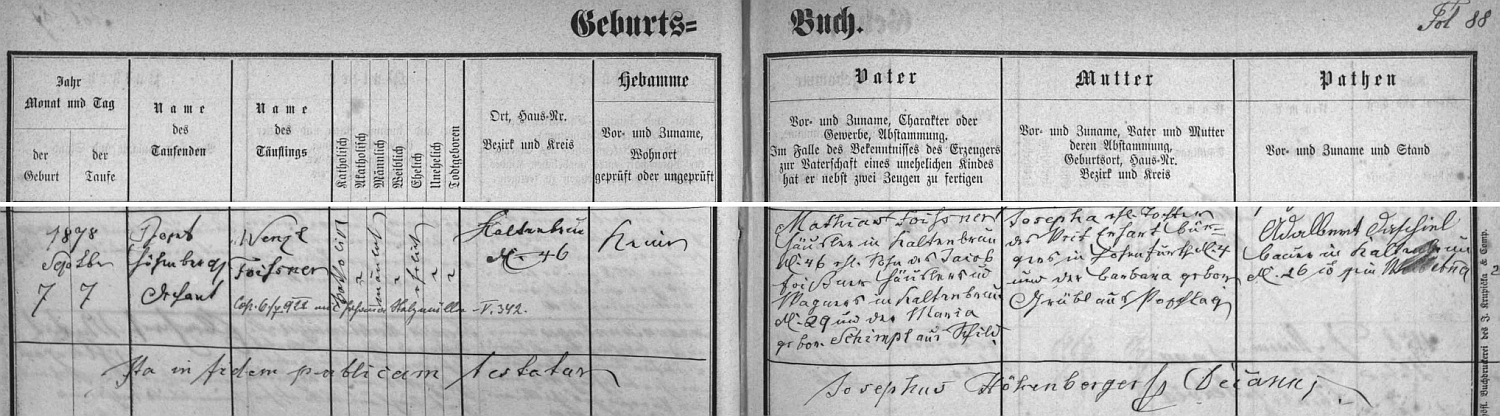 Geburts=
Buch.
Fol 88
Jahr
Monat und Tag
der
Geburt
der
Taufe
Name
des
Taufenden
Name
des
Täuflings
Katholisch
Akatholisch
Männlich
Weiblich
Ehelich
Unehelich
Todtgeboren
Ort, Haus-Nr.
Bezirk und Kreis
Hebamme
Vor- und Zuname,
Wohnort
geprüft oder ungeprüft
Vater
Vor- und Zuname, Charakter oder
Gewerbe, Abstammung.
Im Falle des Bekenntnisses des Erzeugers
zur Vaterschaft eines unehelichen Kindes
hat er nebst zwei Zeugen zu fertigen
Mutter
Vor- und Zuname, Vater und Mutter
deren Abstammung,
Geburtsort, Haus-Nr.
Bezirk und Kreis
Pathen
Vor- und Zuname und Stand
1898
7 7
Höhenberg
Dechant
Wenzl
Foissner
katholisch
männlich
ehelich
Kaltenbrun
N. 46
Keine
Mathias Foissner
Häusler in Kaltenbrun
N. 46 ehl. Sohn des Jacob
Foissner Häuslers und
Wagners in Kaltenbrun
N. 29 und der Maria
gebor. Schimpl aus Schild
Josepha ehl. Tochter
des Veit Erhart Bür-
gers in Hohenfurth N. 4
und der Barbara gebor.
Grübl aus
Adalbert
Bauer in Kaltenbrun
N. 26
V. 342.
Ita in fidem publicam testatur
Josephus Höhenberger Decanus